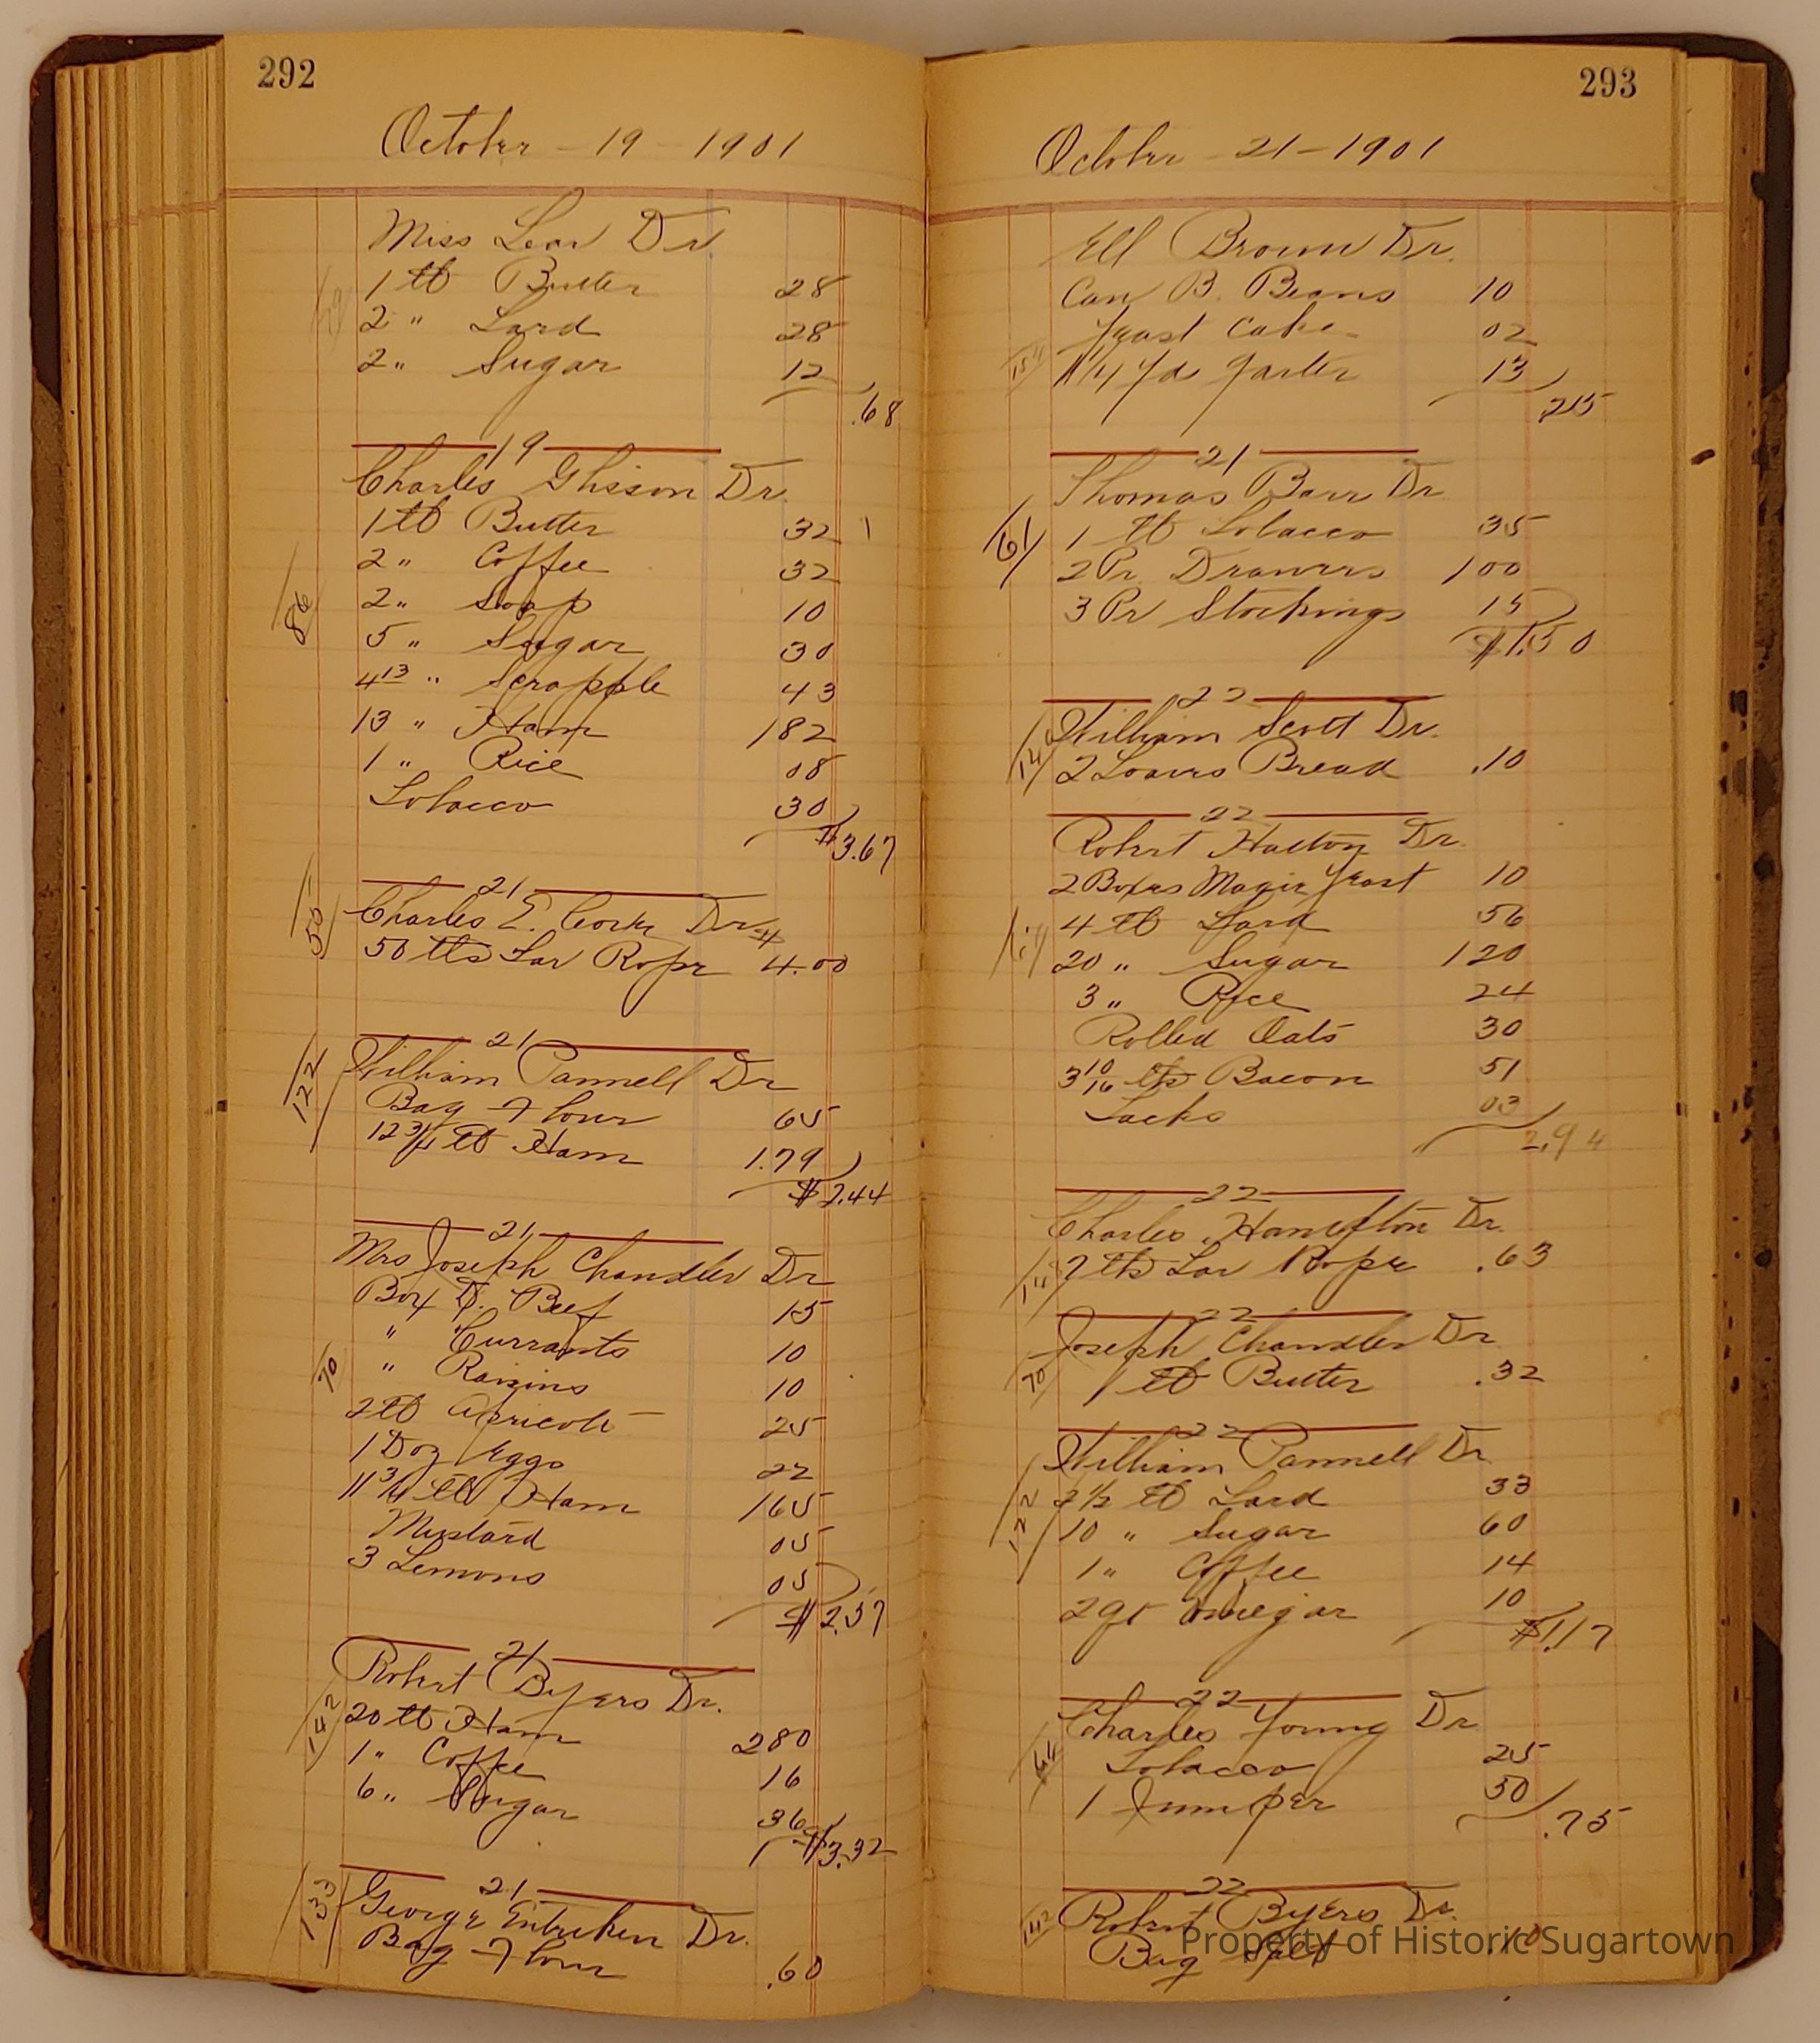 292
October - 19 - 1901
Miss Lear Dr.
1 lb Butter 28
2 " Lard 28
2 " Sugar 12
.68
19
Charles Glisson Dr.
1 lb Butter 32
2 " Coffee 32
2 " Soap 10
5 " Sugar 30
4 13 " Scrapple 43
13 " Ham 182
1 " Rice 08
Tobacco 30
$3.67
86
21
Charles E. Dr
50 lbs Tar Rope 4.00
50
21
William Pannell Dr
Bag Flour 65
12 3/4 lb Ham 1.79
$2.44
122
21
Mrs Joseph Chandler Dr
Box D. Beef 15
" Currants 10
" Raisins 10
2 lb Apricots 25
1 Doz Eggs 22
11 3/4 lb Ham 165
Mustard 05
3 Lemons 05
$2.57
70
21
Robert Byers Dr.
20 lb Ham 280
1 " Coffee 16
6 " Sugar 36
$3.32
142
21
George Entreken Dr.
Bag Flour .60
133
293
October - 21 - 1901
Ell Brown Dr.
Can B. Beans 10
Yeast Cake 02
1 1/4 Yds Garter 13
.25
21
Thomas Barr Dr
1 lb Tobacco 35
2 Pr Drawers 100
3 Pr Stockings 15
$1.50
61
22
William Scott Dr.
2 Loaves Bread .10
22
Robert Hatton Dr.
2 Boxes Magic Yeast 10
4 lb Lard 56
20 " Sugar 120
3 " Rice 24
Rolled Oats 30
3 10/16 lbs Bacon 51
Tacks 03
2.94
22
Charles Hampton Dr.
7 lbs Tar Rope .63
22
Joseph Chandler Dr
1 lb Butter .32
70
22
William Pannell Dr
2 1/2 lb Lard 33
10 " Sugar 60
1 " Coffee 14
2 qt Vinegar 10
$1.17
122
22
Charles Young Dr
Tobacco 25
1 Jumper 50
.75
64
22
Robert Byers Dr.
Bag Salt
142
Property of Historic Sugartown